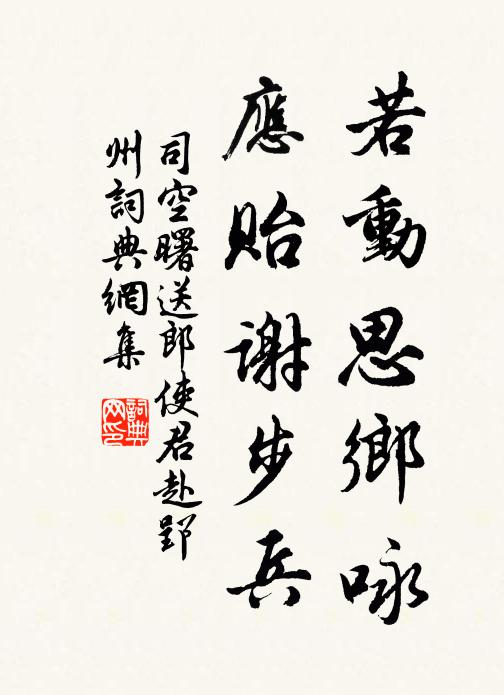 若動思鄉咏
應貽謝步兵
司空曙送郎使君赴郢
州詞典網集
詞典網印